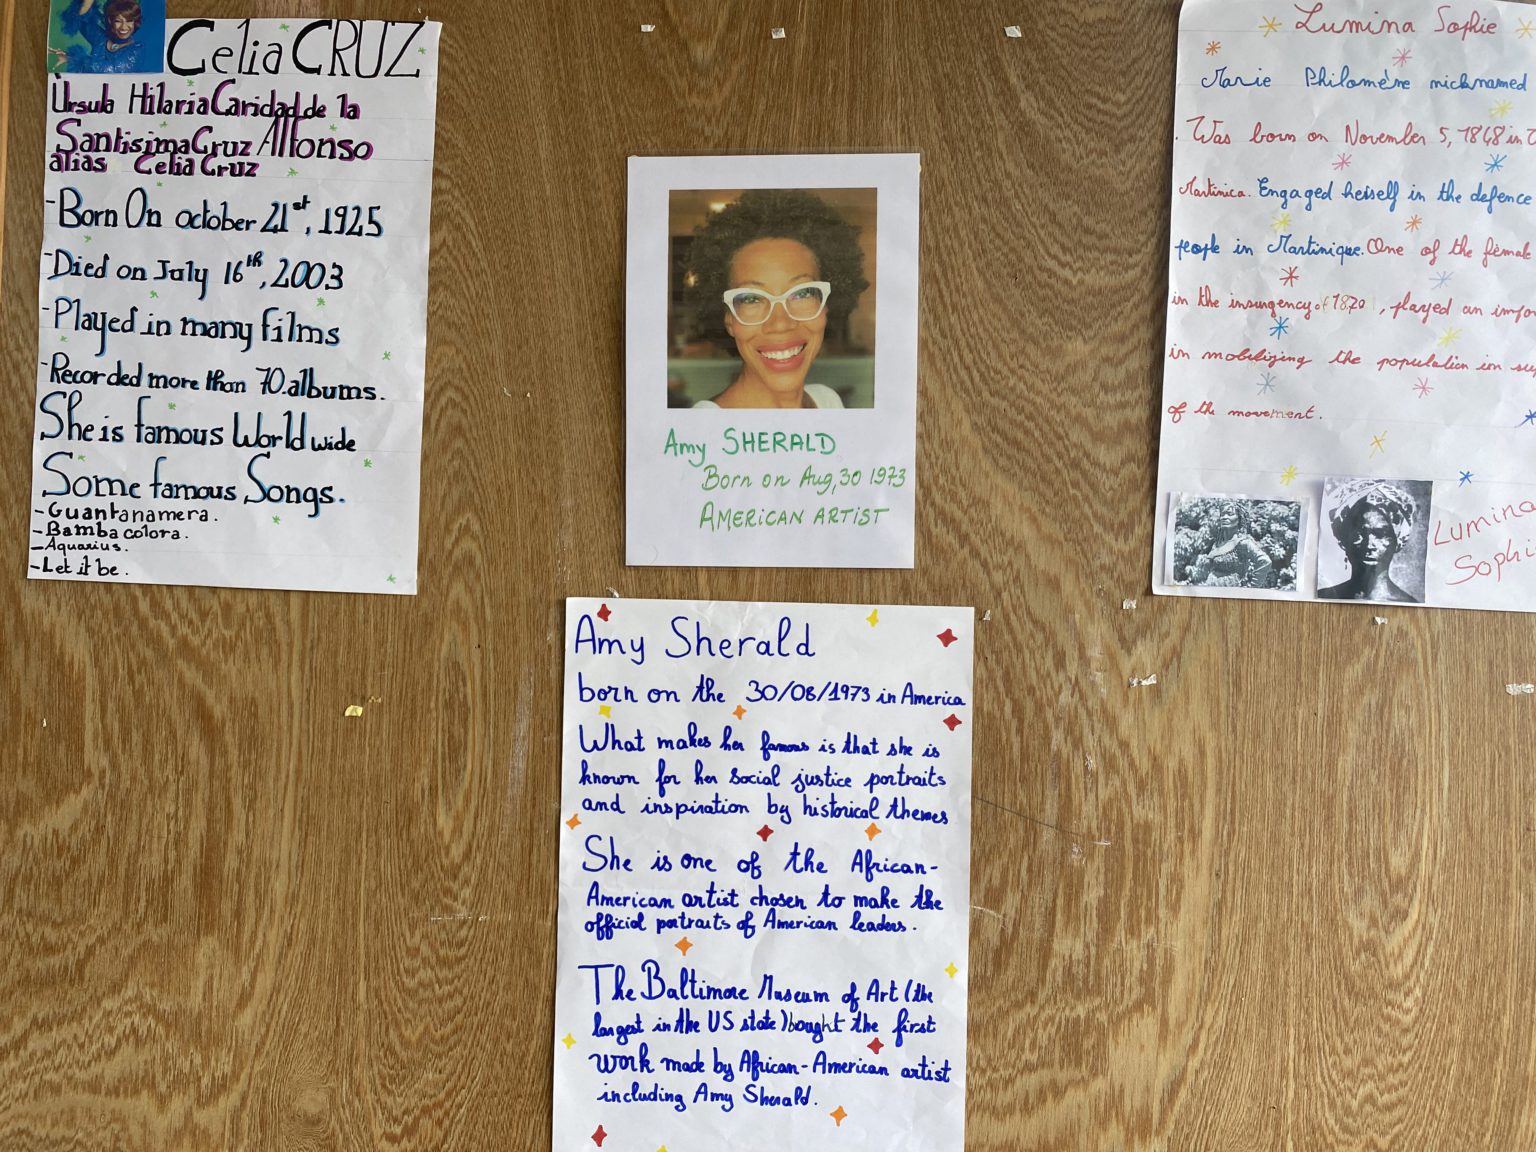 Celia CRUZ
Ùrsula Hilaria Caridad de la
Santisima Cruz Alfonso
alias Celia Cruz
-Born On october 21st, 1925
-Died on July 16th, 2003
-Played in many films
-Recorded more than 70.albums.
She is famous World wide
Some famous Songs.
-Guantanamera.
-Bamba colora.
-Aquarius.
-Let it be.
Amy SHERALD
Born on Aug, 30 1973
AMERICAN ARTIST
Amy Sherald
born on the 30/08/1973 in America
What makes her famous is that she is
known for her social justice portraits
and inspiration by historical themes
She is one of the African-
American artist chosen to make the
official portraits of American leaders.
The Baltimore Museum of Art (the
largest in the US state) bought the first
work made by African-American artist
including Amy Sherald.
Lumina Sophie
Marie Philomène nicknamed
. Was born on November 5, 1848 in
Martinica. Engaged herself in the defence
people in Martinique. One of the female
in the insurgency of 1870, played an
in mobilizing the population in
of the movement.
Lumina
Sophi